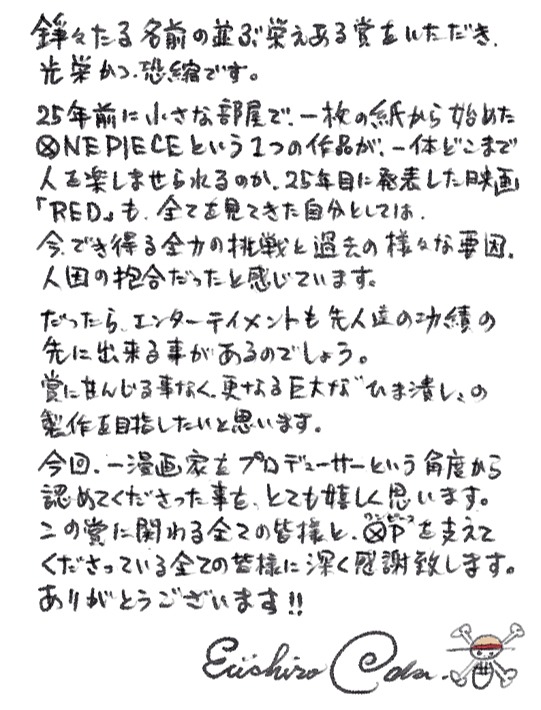 錚々たる名前の並ぶ栄えある賞をいただき、
光栄かつ、恐縮です。
25年前に小さな部屋で、一枚の紙から始めた
ONE PIECEという1つの作品が、一体どこまで
人を楽しませられるのか、25年目に発表した映画
「RED」も、全てを見てきた自分としては、
今、でき得る全力の挑戦と過去の様々な要因、
人因の抱合だったと感じています。
だったら、エンターテイメントも先人達の功績の
先に出来る事があるのでしょう。
賞に甘んじる事なく、更なる巨大な〝ひま潰し〟の
製作を目指したいと思います。
今回、一漫画家をプロデューサーという角度から
認めてくださった事を、とても嬉しく思います。
この賞に関わる全ての皆様と、OPワンピースを支えて
くださっている全ての皆様に深く感謝致します。
ありがとうございます!!
Eiichiro Oda.